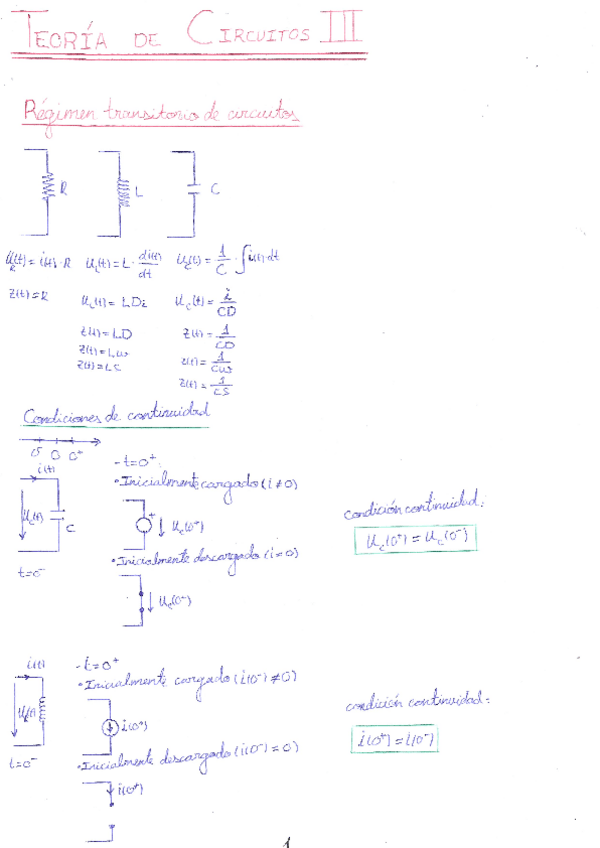 TEORÍA DE CIRCUITOS III
Régimen transitorio de circuitos
R L C
U_R(t) = i(t)·R U_L(t) = L · di(t)/dt U_C(t) = 1/C · ∫i(t)·dt
Z(t) = R U_L(t) = LDi U_C(t) = i/CD
Z(t) = LD Z(t) = 1/CD
Z(t) = Lω Z(t) = 1/Cω
Z(t) = LS Z(t) = 1/CS
Condiciones de continuidad
0⁻ 0 0⁺
i(t)
U_C(t)
C
t=0⁻
- t=0⁺
• Inicialmente cargado (i≠0)
+
U_C(0⁺)
• Inicialmente descargado (i=0)
U_C(0⁺)
condición continuidad:
U_C(0⁺) = U_C(0⁻)
i(t)
t=0⁻
- t=0⁺
• Inicialmente cargado (i(0⁻)≠0)
i(0⁺)
• Inicialmente descargado (i(0⁻)=0)
i(0⁺)
condición continuidad:
i(0⁺) = i(0⁻)
1